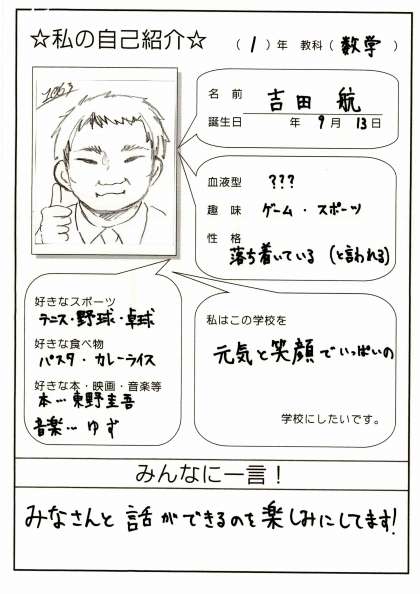 ☆私の自己紹介☆
（ 1 ）年 教科（ 数学 ）
名 前 吉田 航
誕生日 年 9月 13日
血液型 ???
趣 味 ゲーム・スポーツ
性 格
落ち着いている (と言われる)
好きなスポーツ
テニス・野球・卓球
好きな食べ物
パスタ・カレーライス
好きな本・映画・音楽等
本…東野圭吾
音楽…ゆず
私はこの学校を
元気と笑顔でいっぱいの
学校にしたいです。
みんなに一言！
みなさんと話ができるのを楽しみにしてます!